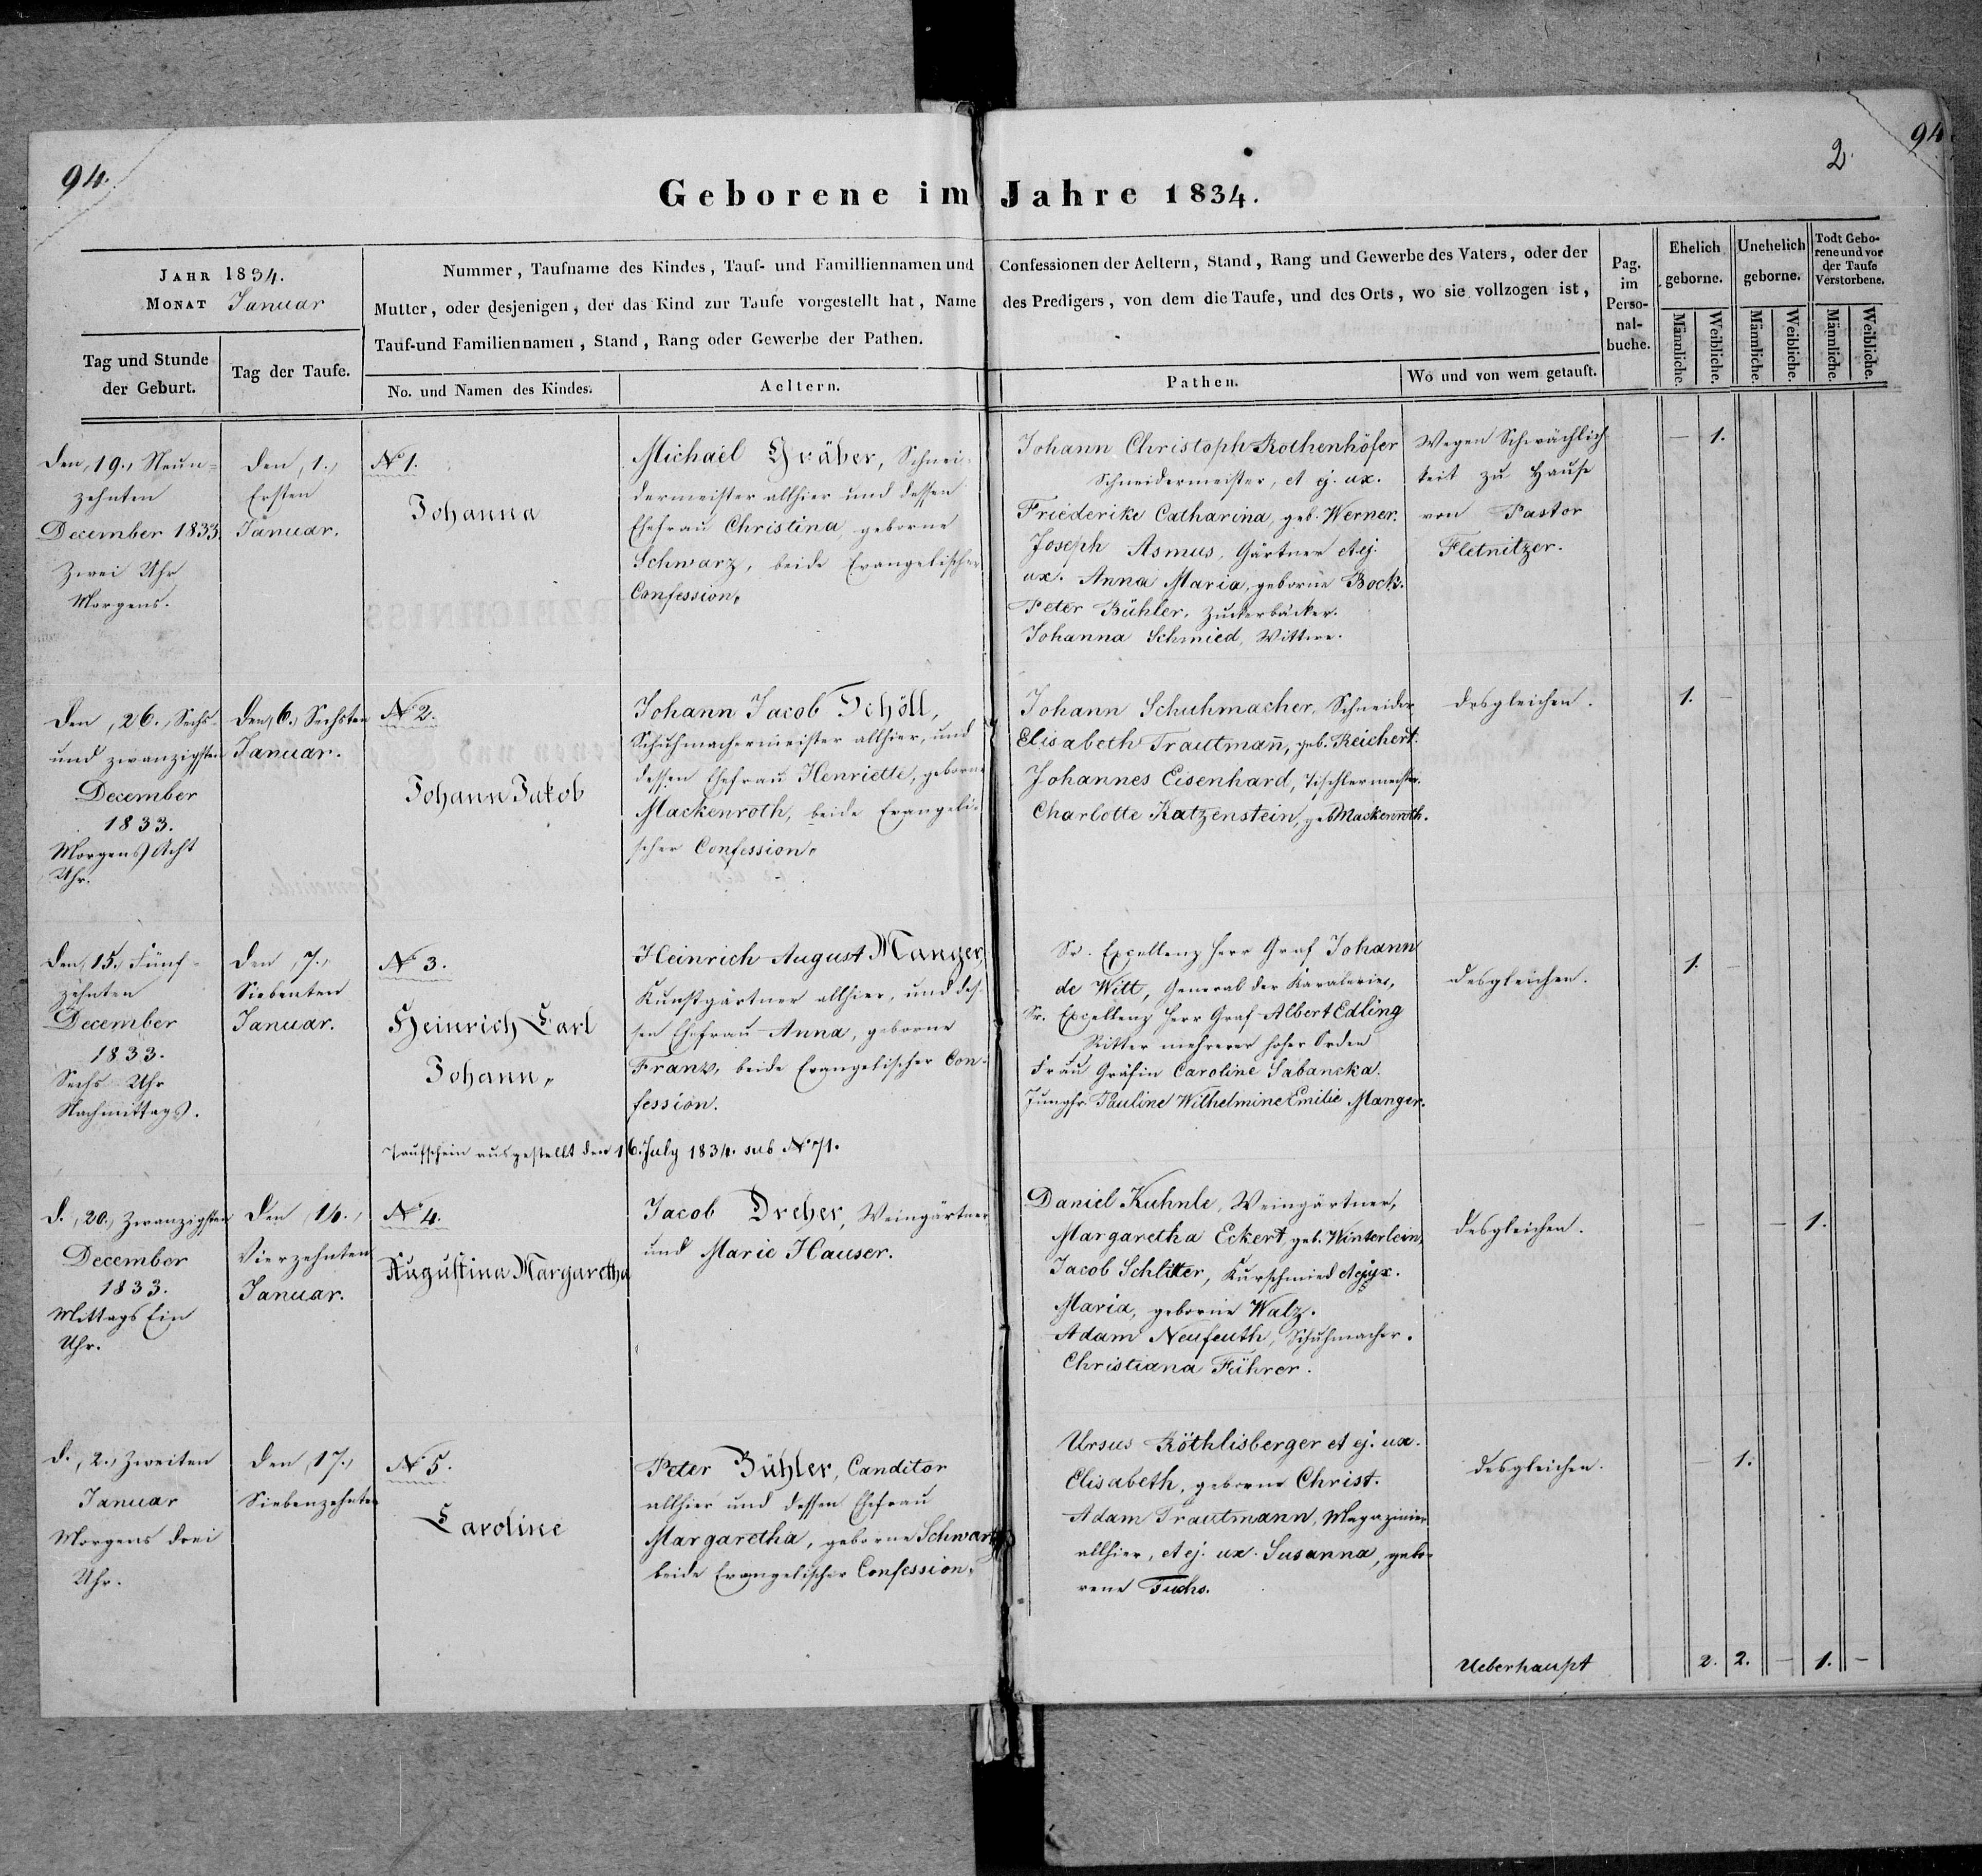 94.
2.
94.
Geborene im Jahre 1834.
JAHR 1834.
MONAT Januar
Tag und Stunde
der Geburt.
Tag der Taufe.
Nummer, Taufname des Kindes, Tauf- und Familliennamen und
Mutter, oder desjenigen, der das Kind zur Taufe vorgestellt hat, Name
Tauf-und Familiennamen, Stand, Rang oder Gewerbe der Pathen.
No. und Namen des Kindes.
Aeltern.
Confessionen der Aeltern, Stand, Rang und Gewerbe des Vaters, oder der
des Predigers, von dem die Taufe, und des Orts, wo sie vollzogen ist,
Pathen.
Wo und von wem getauft.
Pag.
im
Perso-
nal-
buche.
Ehelich
geborne.
Unehelich
geborne.
Todt Gebo-
rene und vor
der Taufe
Verstorbene.
Männliche.
Weibliche.
Männliche.
Weibliche.
Männliche.
Weibliche.
Den, 19., Neun-
zehnten
December 1833.
Zwei Uhr
Morgens.
Den, 1.,
Ersten
Januar.
No 1.
Johanna
Michael Gräber, Schnei-
dermeister allhier und dessen
Ehefrau Christina, geborne
Schwarz, beide Evangelischer
Confession,
Johann Christoph Rothenhöfer
Schneidermeister, et ej. ux.
Friederike Catharina, geb. Werner.
Joseph Asmus, Gärtner et ej.
ux. Anna Maria, geborne Bock.
Peter Bühler, Zuckerbäcker.
Johanna Schmied, Wittwe.
Wegen Schwächlich
keit zu Hause
von Pastor
Fletnitzer.
— 1.
Den, 26., Sechs-
und zwanzigsten
December
1833.
Morgens Acht
Uhr.
Den, 6., Sechsten
Januar.
No 2.
Johann Jakob
Johann Jacob Schöll,
Schuhmachermeister allhier, und
dessen Ehefrau Henriette, geborne
Mackenroth, beide Evangeli-
scher Confession,
Johann Schuhmacher, Schneider
Elisabeth Trautmañ, geb. Reichert.
Johannes Eisenhard, Tischlermeister.
Charlotte Katzenstein, geb Mackenroth.
desgleichen.
1. —
Den, 15., Fünf-
zehnten
December
1833.
Sechs Uhr
Nachmittags.
Den, 7.,
Siebenten
Januar.
No 3.
Heinrich Carl
Johann,
Heinrich August Manger,
Kunstgärtner allhier, und des-
sen Ehefrau Anna, geborne
Franz, beide Evangelischer Con-
fession.
Sr. Excellenz Herr Graf Johann
de Witt, General der Kavalerie,
Sr. Excellenz Herr Graf Albert Edling
Ritter mehrerer hoher Orden
Frau Gräfin Caroline Sabancka.
Jungfr. Pauline Wilhelmine Emilie Manger.
desgleichen.
1. —
Taufschein ausgestellt den 16. July 1834. sub No 71.
d., 20., Zwanzigsten
December
1833.
Mittags Ein
Uhr.
Den, 14.,
Vierzehnten
Januar.
No 4.
Augustina Margaretha
Jacob Dreher, Weingärtner
und Marie Hauser.
Daniel Kuhnle, Weingärtner,
Margaretha Eckert, geb. Winterlein,
Jacob Schlitter, Kurschmied et ej. ux.
Maria, geborne Walz.
Adam Neufeuth, Schuhmacher.
Christiana Führer.
desgleichen.
— — 1.
d., 2., Zweiten
Januar
Morgens drei
Uhr.
Den, 17.,
Siebenzehnten
No 5.
Caroline
Peter Bühler, Canditor
allhier und dessen Ehefrau
Margaretha, geborne Schwarz
beide Evangelischer Confession,
Ursus Röthlisberger et ej. ux.
Elisabeth, geborne Christ.
Adam Trautmann, Magazinier
allhier, et ej. ux. Susanna, gebo-
rene Fuchs.
desgleichen.
— 1.
Ueberhaupt
2. 2. — 1. —